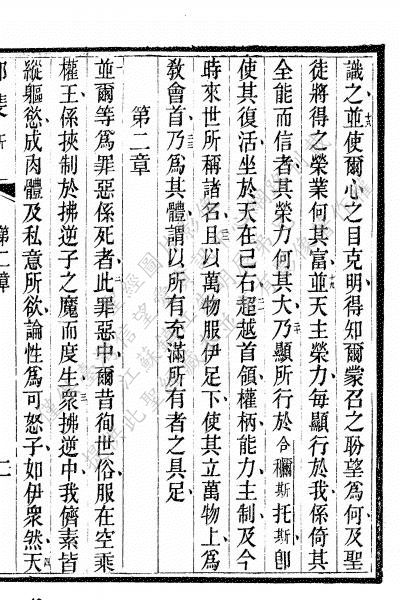 識之並使爾心之目克明得知爾蒙召之聆望為何及聖
徒將得之榮業何其富並天主榮力每顯行於我係倚其
全能而信者其榮力何其大乃顯所行於合穪斯托斯卽
使其復活坐於天在己右超越首領權柄能力主制及今
時來世所稱諸名且以萬物服伊足下使其立萬物上為
敎會首乃為其體謂以所有充滿所有者之具足
第二章
並爾等為罪惡係死者此罪惡中爾昔徇世俗服在空乘
權王係挾制於拂逆子之魔而度生衆拂逆中我儕素皆
縱軀慾成肉體及私意所欲論性為可怒子如伊衆然天
第二章
二